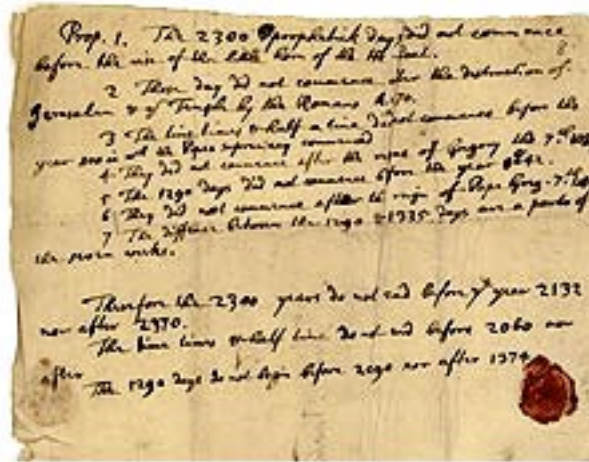 Prop. 1. The 2300 prophetick days did not commence
before the rise of the little horn of the He Goat.
2 Those day did not commence after the destruction of
Jerusalem & ye Temple by the Romans A. 70.
3 The time times & half a time did not commence before the
year 800 in wch the Popes supremacy commenced
4. They did not commence after the reigne of Gregory the 7th
5 The 1290 days did not commence before the year 842.
6 They did not commence after the reign of Pope Greg. 7th
7 The diffence between the 1290 & 1335 days are a parts of
the seven weeks.
Therefore the 2300 years do not end before ye year 2132
nor after 2370.
The time times & half time do not end before 2060 nor
after
The 1290 days do not begin before 2090 nor after 1374